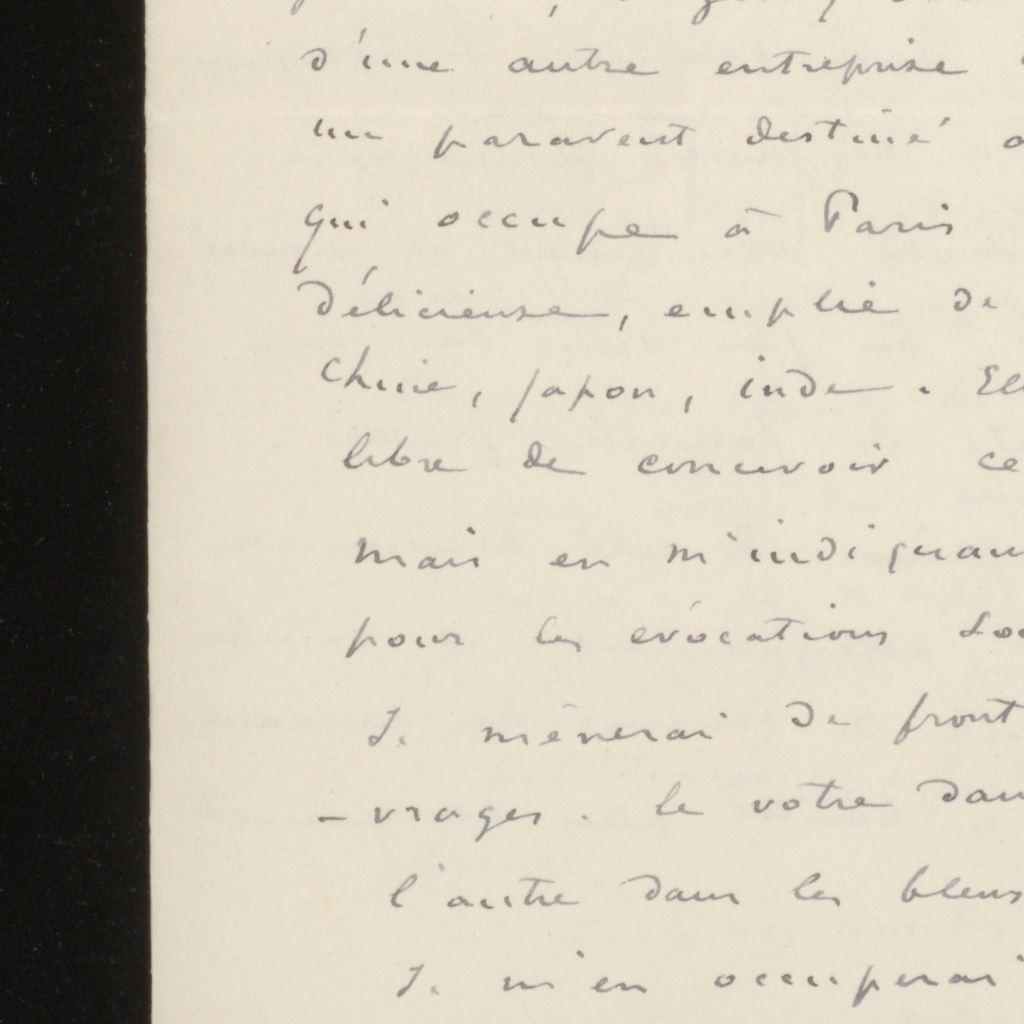 d'une autre entreprise
un paravent destiné
qui occupe à Paris
délicieuse, emplie de
Chine, Japon, inde. El
libre de concevoir ce
mais en m'indiquan
pour les évocations
Je mènerai de front
- vrages. le votre dan
l'autre dans les bleus
Je m'en occuperai